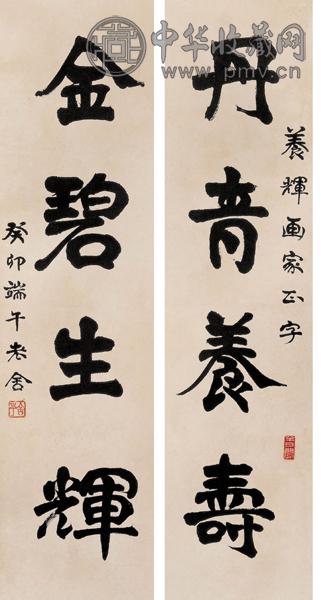 中华收藏网
www.pmv.cn
養輝画家正字
丹青養壽
金碧生輝
癸卯端午老舍